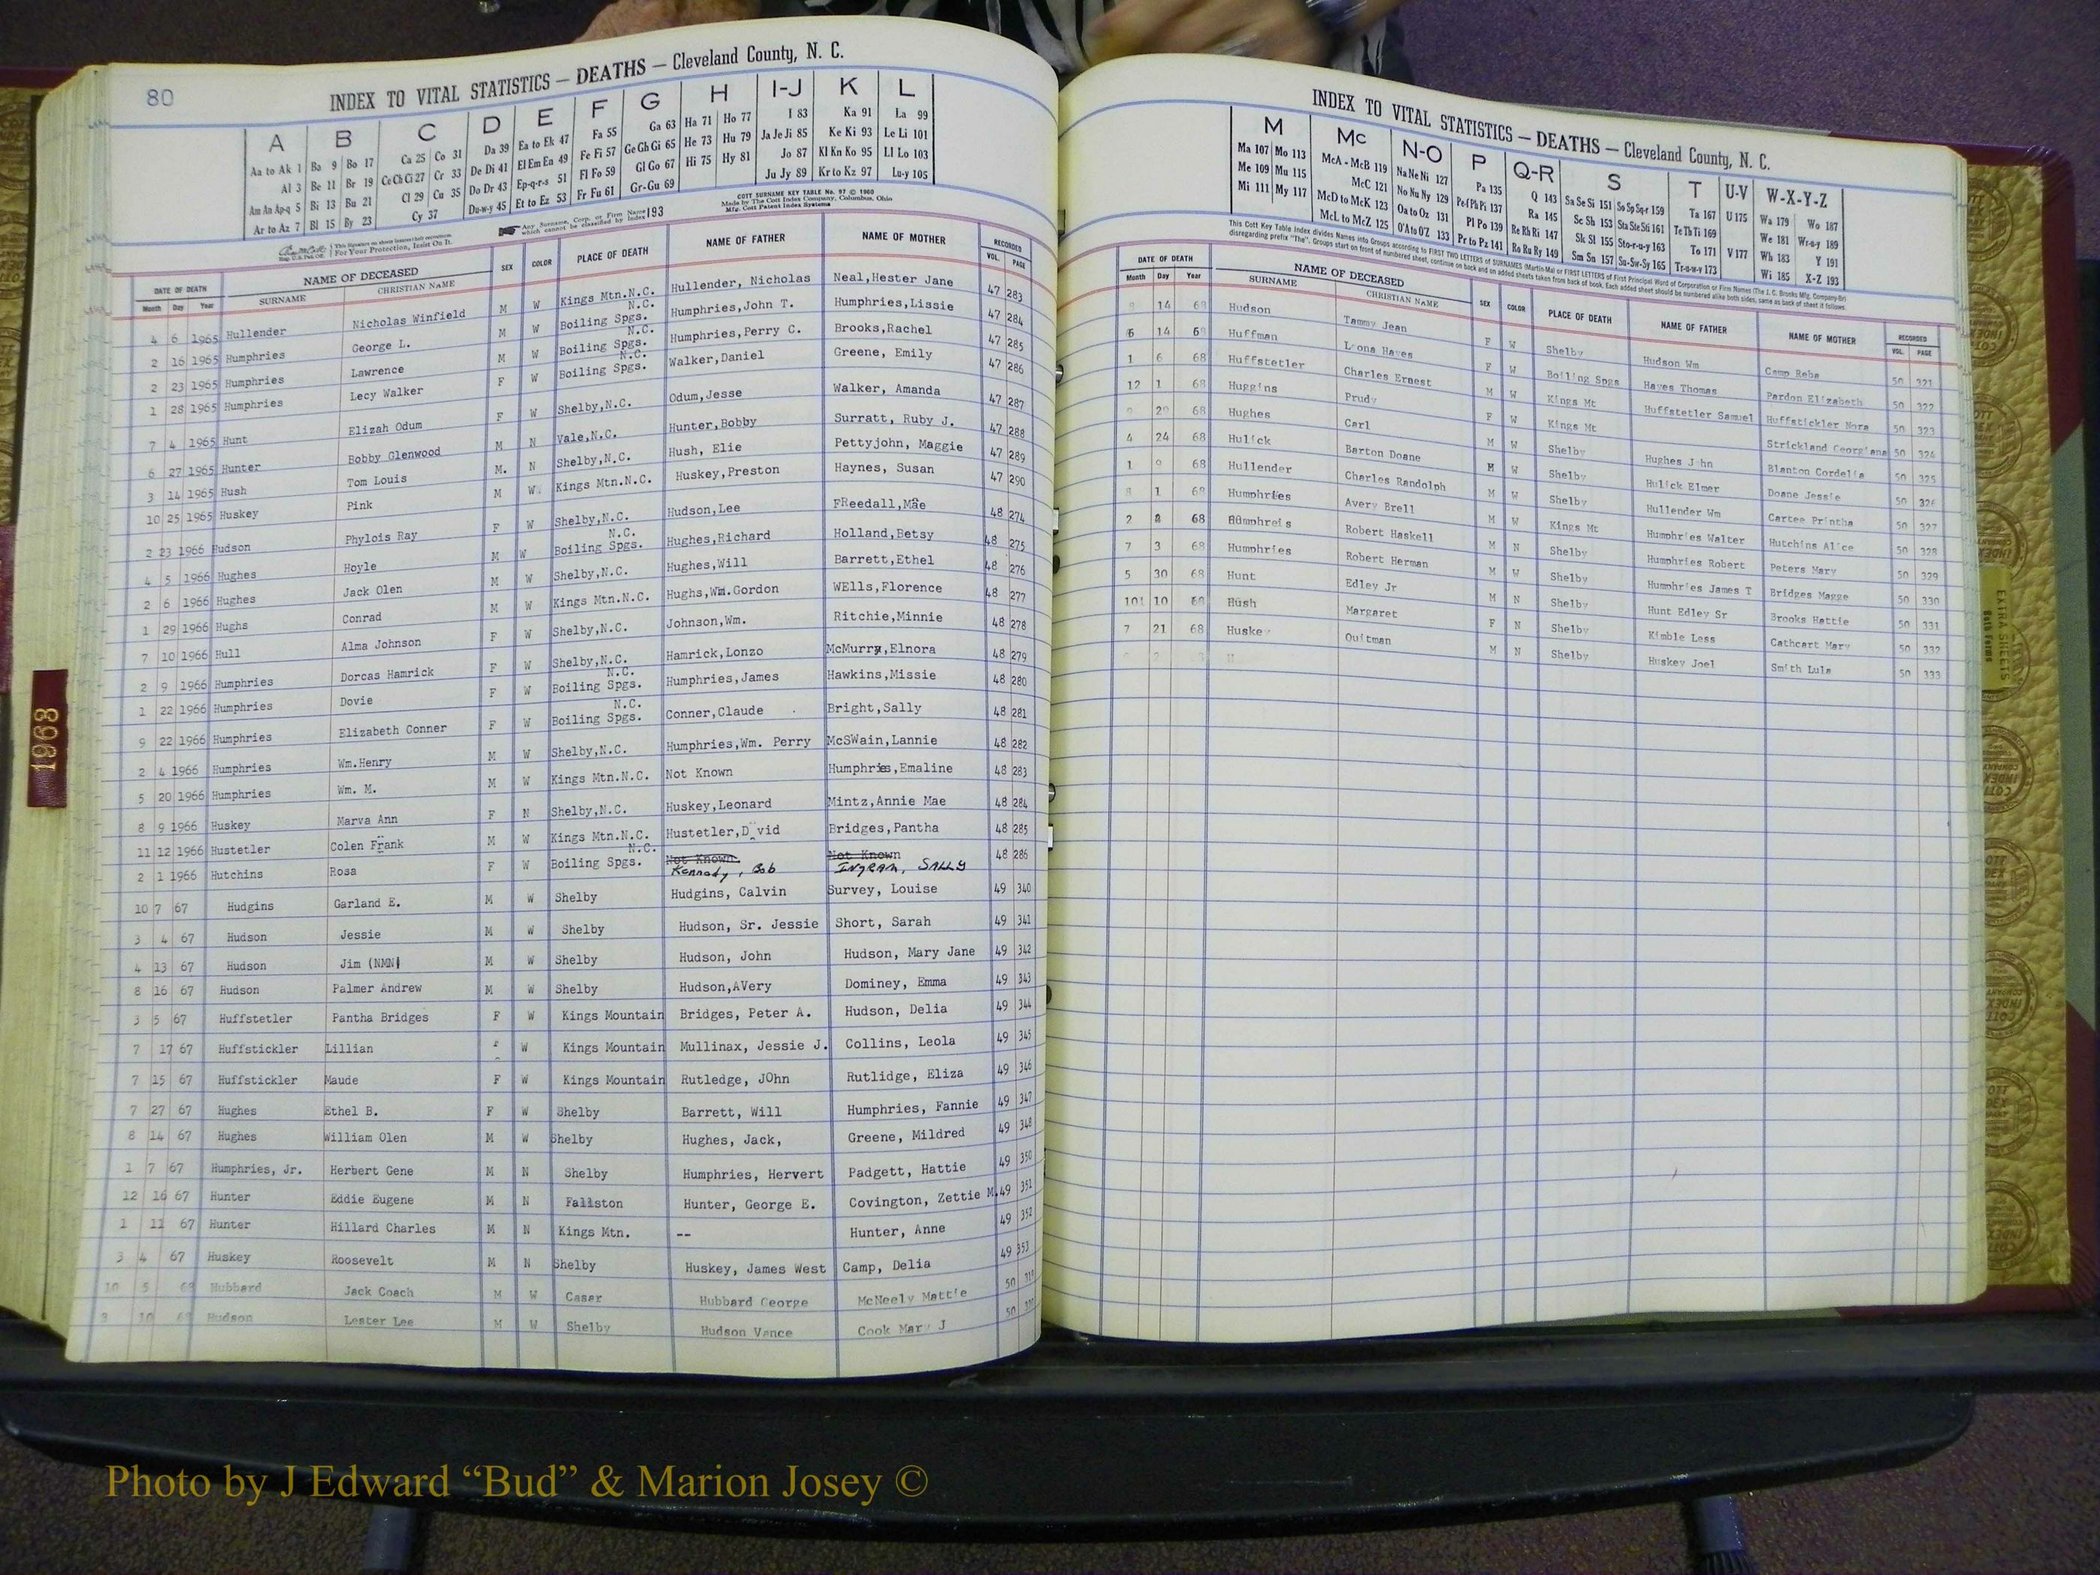 80
INDEX TO VITAL STATISTICS — DEATHS — Cleveland County, N. C.
A B C D E F G H I-J K L
Aa to Ak 1 Ba 9 Bo 17 Ca 25 Co 31 Da 39 Ea to Ek 47 Fa 55 Ga 63 Ha 71 Ho 77 I 83 Ka 91 La 99
Al 3 Be 11 Br 19 Ce Ch Ci 27 Cr 33 De Di 41 El Em En 49 Fe Fi 57 Ge Gh Gi 65 He 73 Hu 79 Ja Je Ji 85 Ke Ki 93 Le Li 101
Am An Ap-q 5 Bi 13 Bu 21 Cl 29 Cu 35 Do Dr 43 Ep-q-r-s 51 Fl Fo 59 Gl Go 67 Hi 75 Hy 81 Jo 87 Kl Kn Ko 95 Ll Lo 103
Ar to Az 7 Bl 15 By 23 Cy 37 Du-w-y 45 Et to Ez 53 Fr Fu 61 Gr-Gu 69 Ju Jy 89 Kr to Kz 97 Lu-y 105
For Your Protection, Insist On It.
Any Surname, Corp. or Firm Name which cannot be classified by Index 193
COTT SURNAME KEY TABLE No. 97 © 1960
Made by The Cott Index Company, Columbus, Ohio
Mfg. Cott Patent Index Systems
DATE OF DEATH NAME OF DECEASED SEX COLOR PLACE OF DEATH NAME OF FATHER NAME OF MOTHER RECORDED
Month Day Year SURNAME CHRISTIAN NAME VOL. PAGE
4 6 1965 Hullender Nicholas Winfield M W Kings Mtn.N.C. Hullender, Nicholas Neal,Hester Jane 47 283
2 16 1965 Humphries George L. M W Boiling Spgs. N.C. Humphries,John T. Humphries,Lissie 47 284
2 23 1965 Humphries Lawrence M W Boiling Spgs. N.C. Humphries,Perry C. Brooks,Rachel 47 285
1 28 1965 Humphries Lecy Walker F W Boiling Spgs. N.C. Walker,Daniel Greene, Emily 47 286
7 4 1965 Hunt Elizah Odum F W Shelby,N.C. Odum,Jesse Walker, Amanda 47 287
6 27 1965 Hunter Bobby Glenwood M N Vale,N.C. Hunter,Bobby Surratt, Ruby J. 47 288
3 14 1965 Hush Tom Louis M. N Shelby,N.C. Hush, Elie Pettyjohn, Maggie 47 289
10 25 1965 Huskey Pink M W. Kings Mtn.N.C. Huskey,Preston Haynes, Susan 47 290
2 23 1966 Hudson Phylois Ray F W Shelby,N.C. Hudson,Lee FReedall,Mae 48 274
4 5 1966 Hughes Hoyle M W Boiling Spgs. N.C. Hughes,Richard Holland,Betsy 48 275
2 6 1966 Hughes Jack Olen M W Shelby,N.C. Hughes,Will Barrett,Ethel 48 276
1 29 1966 Hughs Conrad M W Kings Mtn.N.C. Hughs,Wm.Gordon WElls,Florence 48 277
7 10 1966 Hull Alma Johnson F W Shelby,N.C. Johnson,Wm. Ritchie,Minnie 48 278
2 9 1966 Humphries Dorcas Hamrick F W Shelby,N.C. Hamrick,Lonzo McMurry,Elnora 48 279
1 22 1966 Humphries Dovie F W Boiling Spgs. N.C. Humphries,James Hawkins,Missie 48 280
9 22 1966 Humphries Elizabeth Conner F W Boiling Spgs. N.C. Conner,Claude Bright,Sally 48 281
2 4 1966 Humphries Wm.Henry M W Shelby,N.C. Humphries,Wm. Perry McSWain,Lannie 48 282
5 20 1966 Humphries Wm. M. M W Kings Mtn.N.C. Not Known Humphries,Emaline 48 283
8 9 1966 Huskey Marva Ann F N Shelby,N.C. Huskey,Leonard Mintz,Annie Mae 48 284
11 12 1966 Hustetler Colen Frank M W Kings Mtn.N.C. Hustetler,David Bridges,Pantha 48 285
2 1 1966 Hutchins Rosa F W Boiling Spgs. N.C. Not Known Kennady, Bob Not Known Ingram, Sally 48 286
10 7 67 Hudgins Garland E. M W Shelby Hudgins, Calvin Survey, Louise 49 340
3 4 67 Hudson Jessie M W Shelby Hudson, Sr. Jessie Short, Sarah 49 341
4 13 67 Hudson Jim (NMN) M W Shelby Hudson, John Hudson, Mary Jane 49 342
8 16 67 Hudson Palmer Andrew M W Shelby Hudson,AVery Dominey, Emma 49 343
3 5 67 Huffstetler Pantha Bridges F W Kings Mountain Bridges, Peter A. Hudson, Delia 49 344
7 17 67 Huffstickler Lillian F W Kings Mountain Mullinax, Jessie J. Collins, Leola 49 345
7 15 67 Huffstickler Maude F W Kings Mountain Rutledge, JOhn Rutlidge, Eliza 49 346
7 27 67 Hughes Ethel B. F W Shelby Barrett, Will Humphries, Fannie 49 347
8 14 67 Hughes William Olen M W Shelby Hughes, Jack, Greene, Mildred 49 348
1 7 67 Humphries, Jr. Herbert Gene M N Shelby Humphries, Hervert Padgett, Hattie 49 350
12 16 67 Hunter Eddie Eugene M N Fallston Hunter, George E. Covington, Zettie M. 49 351
1 11 67 Hunter Hillard Charles M N Kings Mtn. -- Hunter, Anne 49 352
3 4 67 Huskey Roosevelt M N Shelby Huskey, James West Camp, Delia 49 353
10 5 68 Hubbard Jack Coach M W Casar Hubbard George McNeely Mattie 50 319
3 10 68 Hudson Lester Lee M W Shelby Hudson Vance Cook Mary J 50 320
INDEX TO VITAL STATISTICS — DEATHS — Cleveland County, N. C.
M Mc N-O P Q-R S T U-V W-X-Y-Z
Ma 107 Mo 113 McA - McB 119 Na Ne Ni 127 Pa 135 Q 143 Sa Se Si 151 So Sp Sq-r 159 Ta 167 U 175 Wa 179 Wo 187
Me 109 Mu 115 McC 121 No Nu Ny 129 Pe-f Ph Pi 137 Ra 145 Sc Sh 153 Sta Ste Sti 161 Te Th Ti 169 We 181 Wr-u-y 189
Mi 111 My 117 McD to McK 123 Oa to Oz 131 Pl Po 139 Re Rh Ri 147 Sk Sl 155 Sto-r-u-y 163 To 171 V 177 Wh 183 Y 191
McL to McZ 125 O'A to O'Z 133 Pr to Pz 141 Ro Ru Ry 149 Sm Sn 157 Su-Sw-Sy 165 Tr-u-w-y 173 Wi 185 X-Z 193
This Cott Key Table Index divides Names into Groups according to FIRST TWO LETTERS of SURNAMES (Martin-Ma) or FIRST LETTERS of First Principal Word of Corporation or Firm Names (The J. C. Brooks Mfg. Company-Br)
disregarding prefix "The". Groups start on front of numbered sheet, continue on back and on added sheets taken from back of book. Each added sheet should be numbered alike both sides, same as back of sheet it follows.
DATE OF DEATH NAME OF DECEASED SEX COLOR PLACE OF DEATH NAME OF FATHER NAME OF MOTHER RECORDED
Month Day Year SURNAME CHRISTIAN NAME VOL. PAGE
14 68 Hudson Tammy Jean F W Shelby Hudson Wm Camp Reba 50 321
6 14 68 Huffman Leona Hayes F W Boiling Spgs Hayes Thomas Pardon Elizabeth 50 322
1 6 68 Huffstetler Charles Ernest M W Kings Mt Huffstetler Samuel Huffstickler Nora 50 323
12 1 68 Huggins Prudy F W Kings Mt Strickland Georgiana 50 324
29 68 Hughes Carl M W Shelby Hughes John Blanton Cordelia 50 325
4 24 68 Hulick Barton Doane M W Shelby Hulick Elmer Doane Jessie 50 326
1 9 68 Hullender Charles Randolph M W Shelby Hullender Wm Cartee Printha 50 327
8 1 68 Humphries Avery Brell M W Kings Mt Humphries Walter Hutchins Alice 50 328
2 8 68 Humphreis Robert Haskell M N Shelby Humphries Robert Peters Mary 50 329
7 3 68 Humphries Robert Herman M W Shelby Humphries James T Bridges Magge 50 330
5 30 68 Hunt Edley Jr M N Shelby Hunt Edley Sr Brooks Hattie 50 331
10 10 68 Hush Margaret F N Shelby Kimble Less Cathcart Mary 50 332
7 21 68 Huskey Quitman M N Shelby Huskey Joel Smith Lula 50 333
1968
EXTRA SHEETS
Both Forms
Photo by J Edward “Bud” & Marion Josey ©